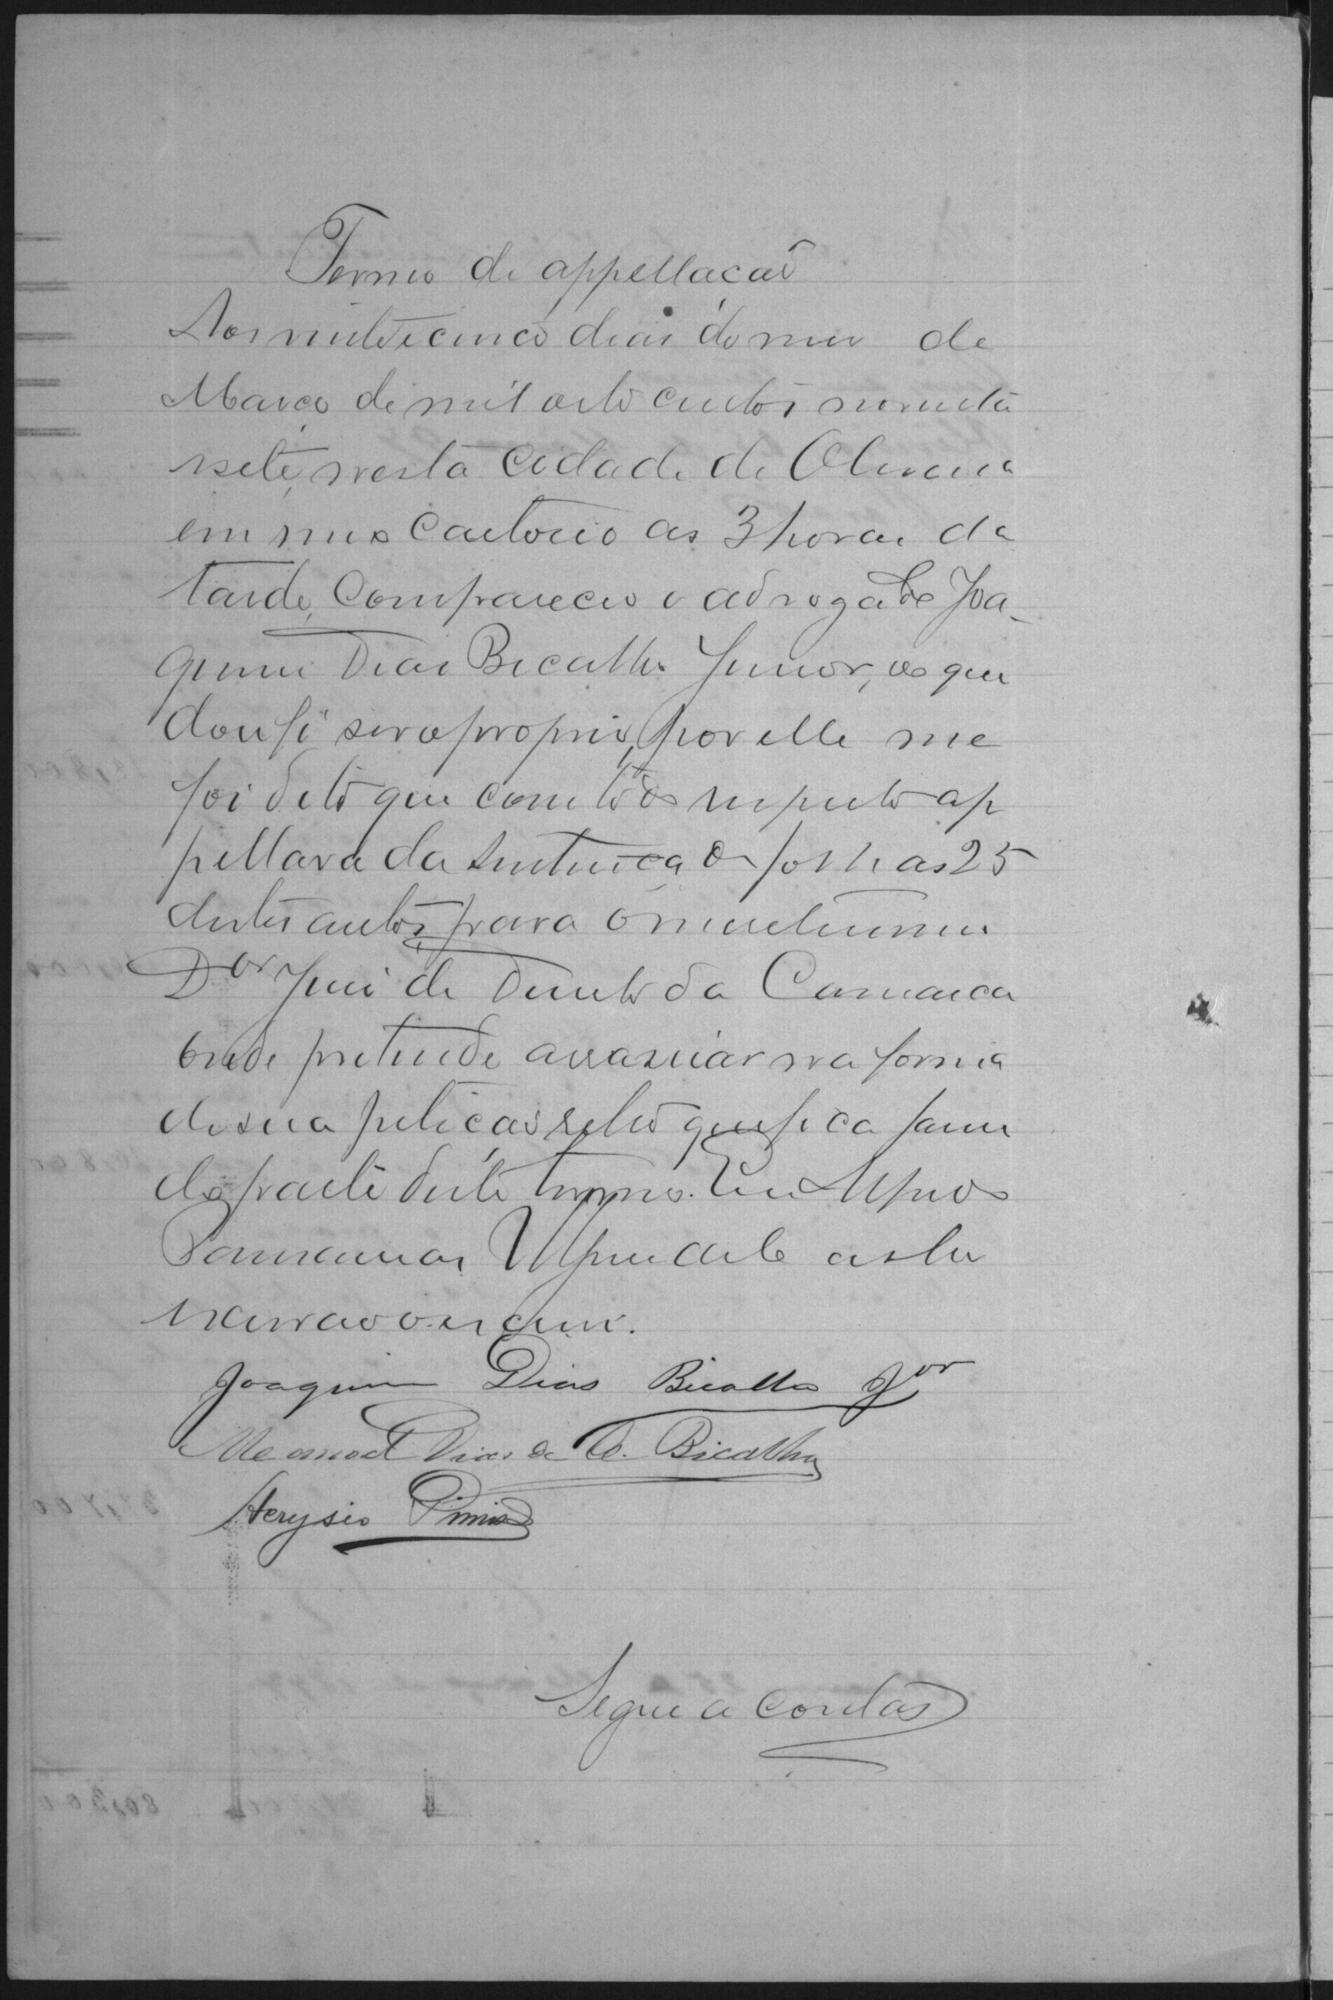 Termo de appellacaõ
Aos vinte e cinco dias do mez de
Março de mil oito centos noventa
e sete, nesta Cidade de Oliveira
em meo Cartorio as 3 horas da
tarde, Compareceo o advogado Joa-
quim Dias Bicalho Junior, do que
dou fé ser o proprio, por elle me
foi dito que com todo respeito ap
pellava da sentença de folhas 25
destes autos para o meretissimo
Dor Juiz de Direito da Comarca
onde pretende arrasoar na forma
de sua petição retro que fica fasen
do parte deste termo. Eu
escrivão o escrevi.
Joaquim Dias Bicalho Jor
Manoel Dias de O. Bicalho
Segue a contas